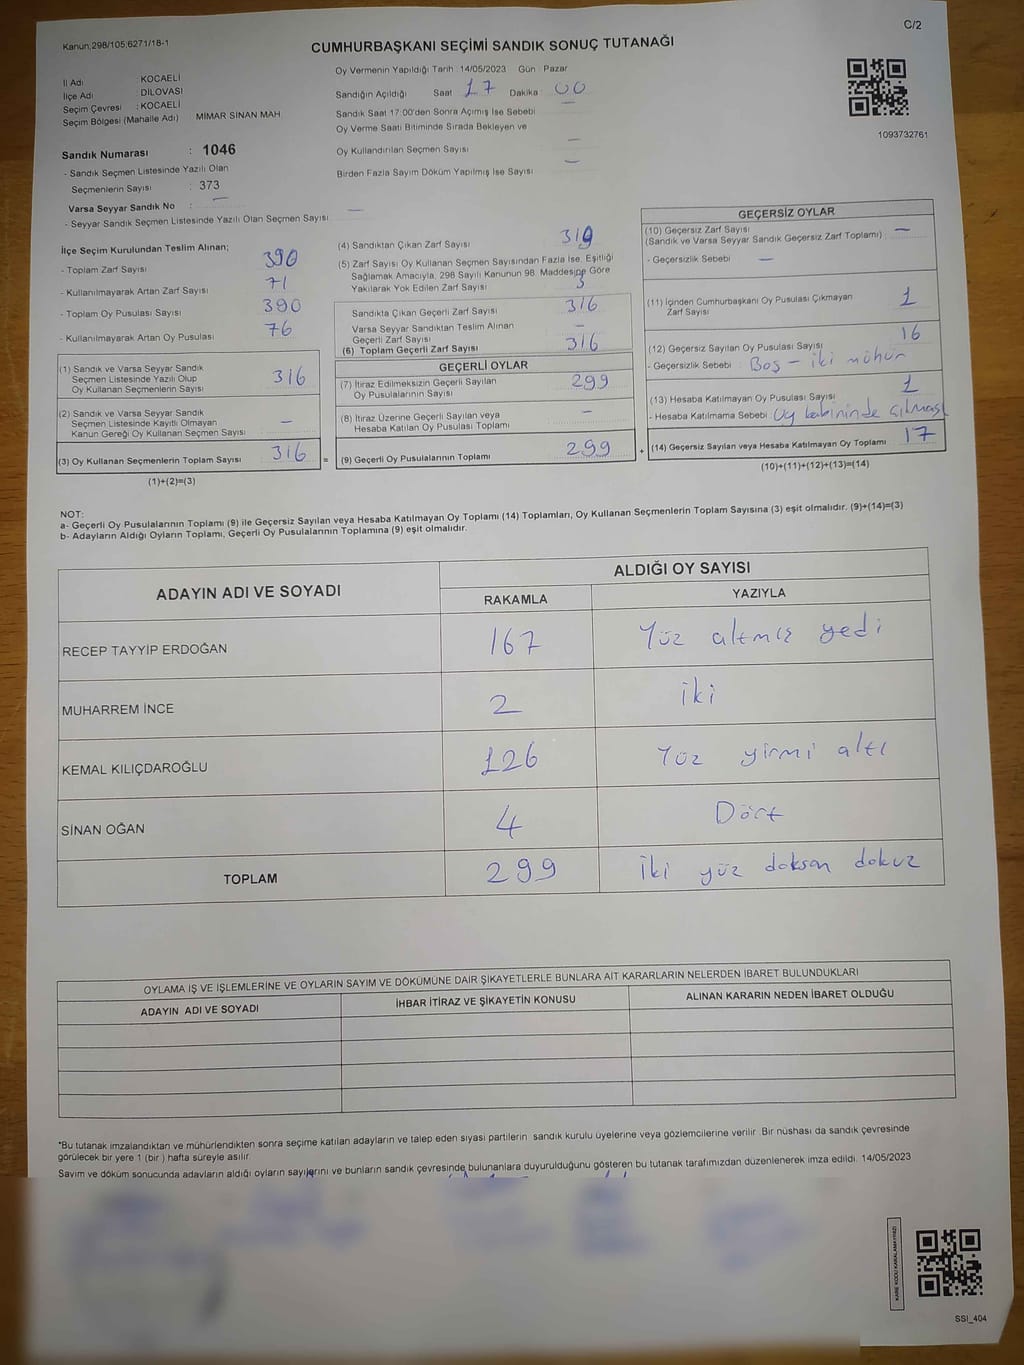 C/2
Kanun;298/105;6271/18-1
CUMHURBAŞKANI SEÇİMİ SANDIK SONUÇ TUTANAĞI
İl Adı KOCAELİ
İlçe Adı DİLOVASI
Seçim Çevresi : KOCAELİ
Seçim Bölgesi (Mahalle Adı) MİMAR SİNAN MAH
Sandık Numarası : 1046
- Sandık Seçmen Listesinde Yazılı Olan
Seçmenlerin Sayısı : 373
Varsa Seyyar Sandık No : —
- Seyyar Sandık Seçmen Listesinde Yazılı Olan Seçmen Sayısı —
Oy Vermenin Yapıldığı Tarih :14/05/2023 Gün Pazar
Sandığın Açıldığı Saat 17 Dakika 00
Sandık Saat 17:00'den Sonra Açımış İse Sebebi —
Oy Verme Saati Bitiminde Sırada Bekleyen ve
Oy Kullandırılan Seçmen Sayısı —
Birden Fazla Sayım Döküm Yapılmış İse Sayısı —
1093732761
İlçe Seçim Kurulundan Teslim Alınan;
- Toplam Zarf Sayısı 390
- Kullanılmayarak Artan Zarf Sayısı 71
- Toplam Oy Pusulası Sayısı 390
- Kullanılmayarak Artan Oy Pusulası 76
(1) Sandık ve Varsa Seyyar Sandık
Seçmen Listesinde Yazılı Olup
Oy Kullanan Seçmenlerin Sayısı 316
(2) Sandık ve Varsa Seyyar Sandık
Seçmen Listesinde Kayıtlı Olmayan
Kanun Gereği Oy Kullanan Seçmen Sayısı —
(3) Oy Kullanan Seçmenlerin Toplam Sayısı 316 =
(1)+(2)=(3)
(4) Sandıktan Çıkan Zarf Sayısı 319
(5) Zarf Sayısı Oy Kullanan Seçmen Sayısından Fazla İse, Eşitliği
Sağlamak Amacıyla, 298 Sayılı Kanunun 98. Maddesine Göre
Yakılarak Yok Edilen Zarf Sayısı 3
Sandıkta Çıkan Geçerli Zarf Sayısı 316
Varsa Seyyar Sandıktan Teslim Alınan
Geçerli Zarf Sayısı —
(6) Toplam Geçerli Zarf Sayısı 316
GEÇERLİ OYLAR
(7) İtiraz Edilmeksizin Geçerli Sayılan
Oy Pusulalarının Sayısı 299
(8) İtiraz Üzerine Geçerli Sayılan veya
Hesaba Katılan Oy Pusulası Toplamı —
(9) Geçerli Oy Pusulalarının Toplamı 299 +
GEÇERSİZ OYLAR
(10) Geçersiz Zarf Sayısı —
(Sandık ve Varsa Seyyar Sandık Geçersiz Zarf Toplamı)
- Geçersizlik Sebebi —
(11) İçinden Cumhurbaşkanı Oy Pusulası Çıkmayan
Zarf Sayısı 1
(12) Geçersiz Sayılan Oy Pusulası Sayısı 16
- Geçersizlik Sebebi Boş - iki mühür
(13) Hesaba Katılmayan Oy Pusulası Sayısı 1
- Hesaba Katılmama Sebebi Oy kabininde çıkması
(14) Geçersiz Sayılan veya Hesaba Katılmayan Oy Toplamı 17
(10)+(11)+(12)+(13)=(14)
NOT:
a- Geçerli Oy Pusulalarının Toplamı (9) ile Geçersiz Sayılan veya Hesaba Katılmayan Oy Toplamı (14) Toplamları, Oy Kullanan Seçmenlerin Toplam Sayısına (3) eşit olmalıdır. (9)+(14)=(3)
b- Adayların Aldığı Oyların Toplamı, Geçerli Oy Pusulalarının Toplamına (9) eşit olmalıdır.
ADAYIN ADI VE SOYADI ALDIĞI OY SAYISI
RAKAMLA YAZIYLA
RECEP TAYYİP ERDOĞAN 167 Yüz altmış yedi
MUHARREM İNCE 2 iki
KEMAL KILIÇDAROĞLU 126 Yüz yirmi altı
SİNAN OĞAN 4 Dört
TOPLAM 299 İki yüz doksan dokuz
OYLAMA İŞ VE İŞLEMLERİNE VE OYLARIN SAYIM VE DÖKÜMÜNE DAİR ŞİKAYETLERLE BUNLARA AİT KARARLARIN NELERDEN İBARET BULUNDUKLARI
ADAYIN ADI VE SOYADI İHBAR İTİRAZ VE ŞİKAYETİN KONUSU ALINAN KARARIN NEDEN İBARET OLDUĞU
*Bu tutanak imzalandıktan ve mühürlendikten sonra seçime katılan adayların ve talep eden siyasi partilerin sandık kurulu üyelerine veya gözlemcilerine verilir. Bir nüshası da sandık çevresinde
görülecek bir yere 1 (bir ) hafta süreyle asılır.
Sayım ve döküm sonucunda adayların aldığı oyların sayılarını ve bunların sandık çevresinde bulunanlara duyurulduğunu gösteren bu tutanak tarafımızdan düzenlenerek imza edildi. 14/05/2023
KARE KODU KARALAMAYINIZ!
SSI_404